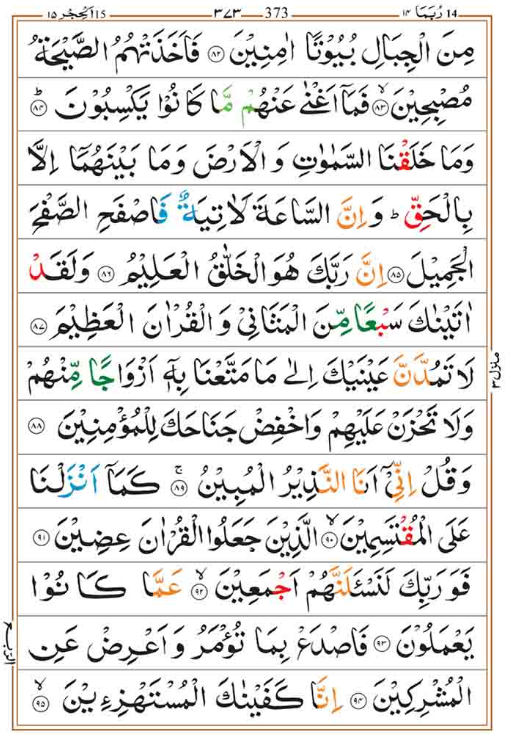 15 اَلْحِجْر ١٥ ٣٧٣ 373 14 رُبَمَا ١٤
مِنَ الْجِبَالِ بُيُوْتًا اٰمِنِيْنَ ﴿٨٢﴾ فَاَخَذَتْهُمُ الصَّيْحَةُ
مُصْبِحِيْنَ ﴿٨٣﴾ فَمَاۤ اَغْنٰى عَنْهُمْ مَّا كَانُوْا يَكْسِبُوْنَ ﴿٨٤﴾ؕ
وَمَا خَلَقْنَا السَّمٰوٰتِ وَالْاَرْضَ وَمَا بَيْنَهُمَاۤ اِلَّا
بِالْحَقِّ ؕ وَاِنَّ السَّاعَةَ لَاٰتِيَةٌ فَاصْفَحِ الصَّفْحَ
الْجَمِيْلَ ﴿٨٥﴾ اِنَّ رَبَّكَ هُوَ الْخَلّٰقُ الْعَلِيْمُ ﴿٨٦﴾ وَلَقَدْ
اٰتَيْنٰكَ سَبْعًا مِّنَ الْمَثَانِيْ وَالْقُرْاٰنَ الْعَظِيْمَ ﴿٨٧﴾
لَا تَمُدَّنَّ عَيْنَيْكَ اِلٰى مَا مَتَّعْنَا بِهٖۤ اَزْوَاجًا مِّنْهُمْ
وَلَا تَحْزَنْ عَلَيْهِمْ وَاخْفِضْ جَنَاحَكَ لِلْمُؤْمِنِيْنَ ﴿٨٨﴾
وَقُلْ اِنِّيْۤ اَنَا النَّذِيْرُ الْمُبِيْنُ ﴿٨٩﴾ۚ كَمَاۤ اَنْزَلْنَا
عَلَى الْمُقْتَسِمِيْنَ ﴿٩٠﴾ۙ الَّذِيْنَ جَعَلُوا الْقُرْاٰنَ عِضِيْنَ ﴿٩١﴾
فَوَرَبِّكَ لَنَسْـَٔلَنَّهُمْ اَجْمَعِيْنَ ﴿٩٢﴾ۙ عَمَّا كَانُوْا
يَعْمَلُوْنَ ﴿٩٣﴾ فَاصْدَعْ بِمَا تُؤْمَرُ وَاَعْرِضْ عَنِ
الْمُشْرِكِيْنَ ﴿٩٤﴾ اِنَّا كَفَيْنٰكَ الْمُسْتَهْزِءِيْنَ ﴿٩٥﴾ۙ
منزل ٣
الربع